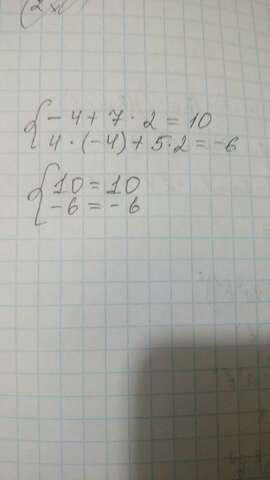 { - 4 + 7 · 2 = 10
4 · (-4) + 5 · 2 = -6
{ 10 = 10
-6 = -6